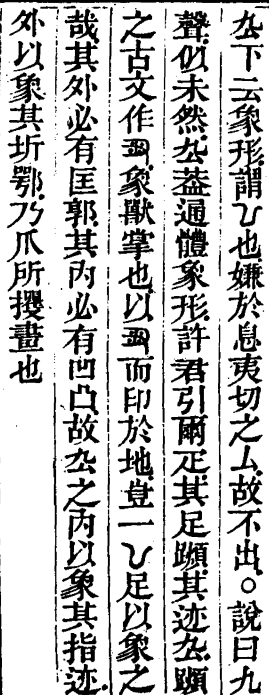 厹下云象形謂乚也嫌於息夷切之厶故不出○說曰九
聲似未然厹葢通體象形許君引爾疋其足蹞其迹厹蹞
之古文作象獸掌也以而印於地豈一乚足以象之
哉其外必有匡郭其內必有凹凸故厹之內以象其指迹
外以象其圻鄂乃爪所攫畫也